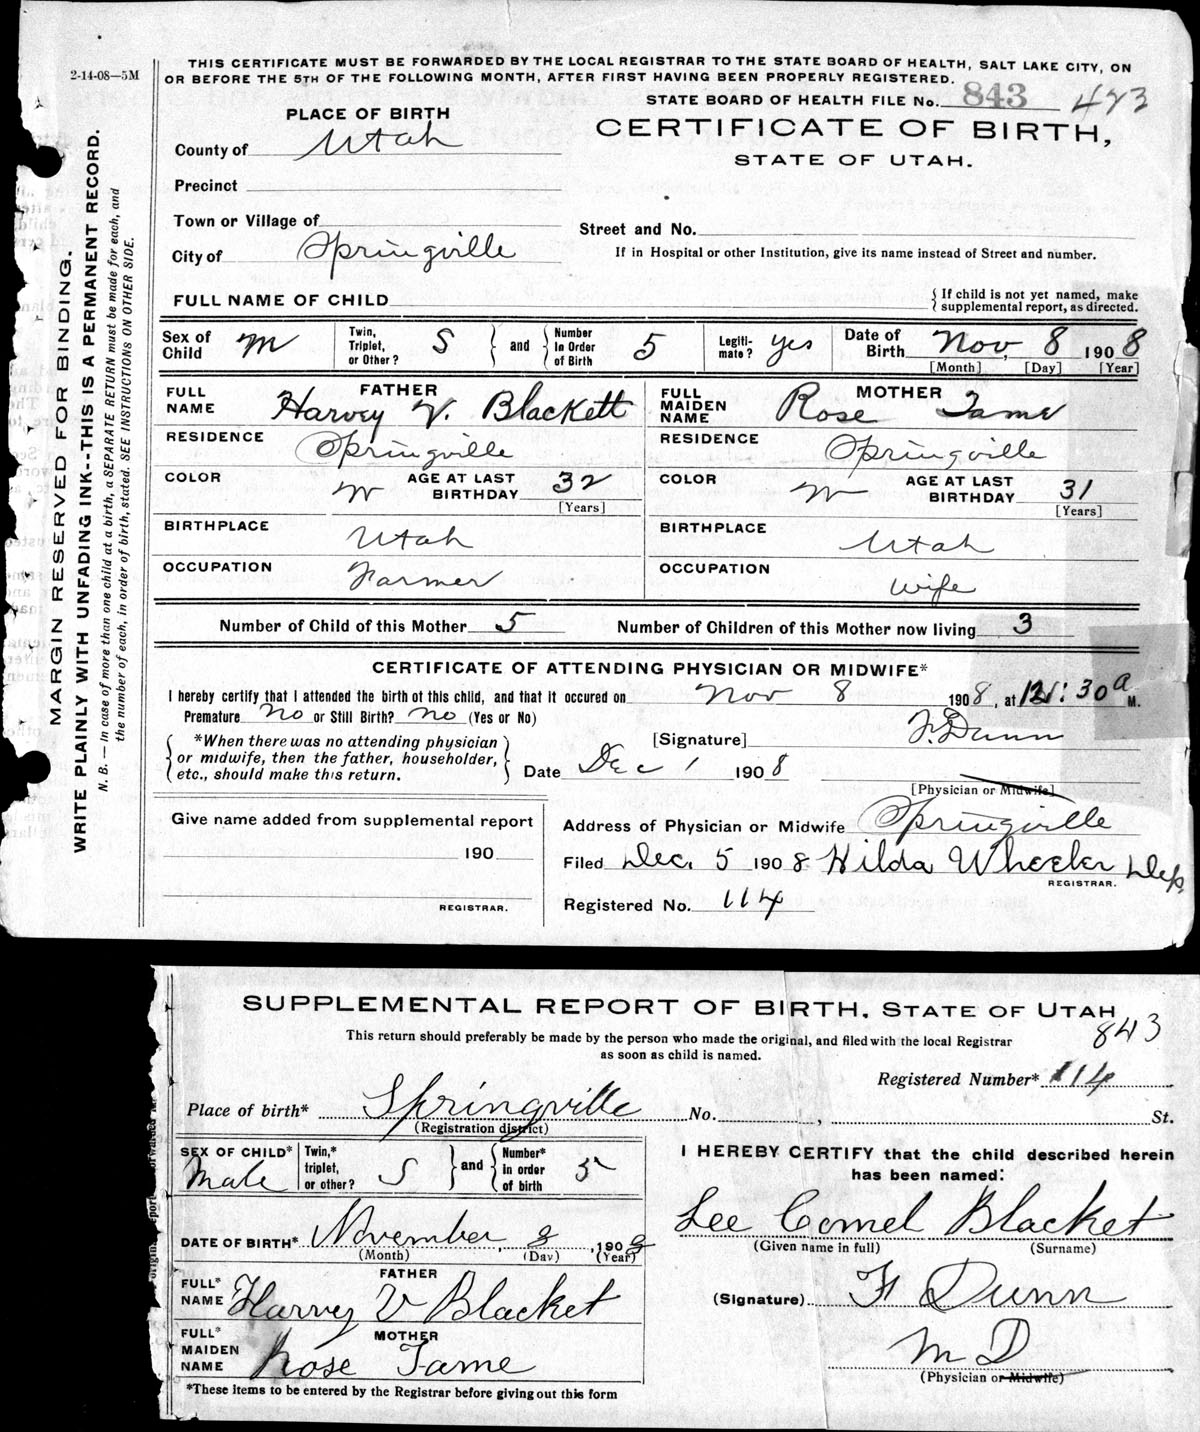 2-14-08—5M
THIS CERTIFICATE MUST BE FORWARDED BY THE LOCAL REGISTRAR TO THE STATE BOARD OF HEALTH, SALT LAKE CITY, ON
OR BEFORE THE 5TH OF THE FOLLOWING MONTH, AFTER FIRST HAVING BEEN PROPERLY REGISTERED.
STATE BOARD OF HEALTH FILE No. 843 423
PLACE OF BIRTH
CERTIFICATE OF BIRTH,
STATE OF UTAH.
County of Utah
Precinct
Town or Village of
Street and No.
City of Springville
If in Hospital or other Institution, give its name instead of Street and number.
FULL NAME OF CHILD
{ If child is not yet named, make
supplemental report, as directed.
MARGIN RESERVED FOR BINDING.
WRITE PLAINLY WITH UNFADING INK--THIS IS A PERMANENT RECORD.
N. B. — In case of more than one child at a birth, a SEPARATE RETURN must be made for each, and
the number of each, in order of birth, stated. SEE INSTRUCTIONS ON OTHER SIDE.
Sex of Child M
Twin, Triplet, or Other? S } and { Number In Order of Birth 5
Legiti-mate? yes
Date of Birth Nov. 8 1908
[Month] [Day] [Year]
FATHER
FULL NAME Harvey V. Blackett
RESIDENCE Springville
COLOR W AGE AT LAST BIRTHDAY 32
[Years]
BIRTHPLACE Utah
OCCUPATION Farmer
MOTHER
FULL MAIDEN NAME Rose Tame
RESIDENCE Springville
COLOR W AGE AT LAST BIRTHDAY 31
[Years]
BIRTHPLACE Utah
OCCUPATION wife
Number of Child of this Mother 5 Number of Children of this Mother now living 3
CERTIFICATE OF ATTENDING PHYSICIAN OR MIDWIFE*
I hereby certify that I attended the birth of this child, and that it occured on Nov 8 1908, at 12:30 a M.
Premature no or Still Birth? no (Yes or No)
{ *When there was no attending physician
or midwife, then the father, householder,
etc., should make this return. }
[Signature] F. Dunn
Date Dec 1 1908
[Physician or Midwife]
Give name added from supplemental report
190
REGISTRAR.
Address of Physician or Midwife Springville
Filed Dec. 5 1908 Hilda Wheeler Dep.
REGISTRAR.
Registered No. 114
SUPPLEMENTAL REPORT OF BIRTH, STATE OF UTAH
843
This return should preferably be made by the person who made the original, and filed with the local Registrar
as soon as child is named.
Registered Number* 114
Place of birth* Springville No. , St.
(Registration district)
SEX OF CHILD* Male
Twin,* triplet, or other? S } and { Number* in order of birth 5
DATE OF BIRTH* November 8, 1908
(Month) (Day) (Year)
FATHER
FULL* NAME Harvey V Blacket
MOTHER
FULL* MAIDEN NAME Rose Tame
*These items to be entered by the Registrar before giving out this form
I HEREBY CERTIFY that the child described herein
has been named:
Lee Comel Blacket
(Given name in full) (Surname)
(Signature) F Dunn
M D
(Physician or Midwife)